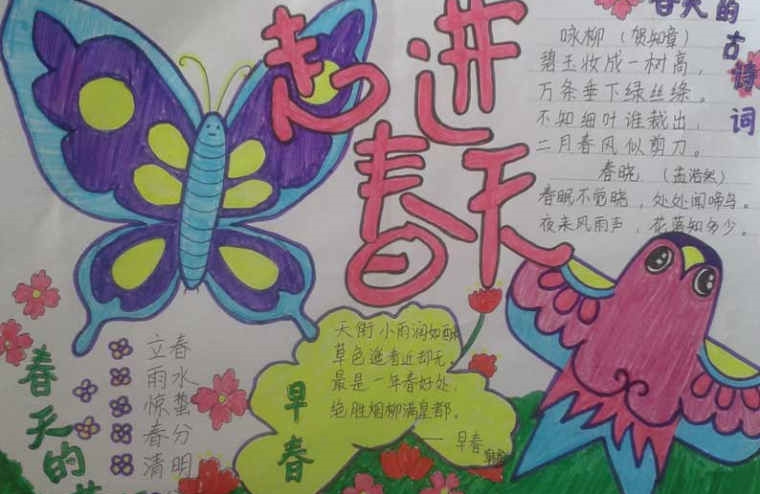 走进春天
春天的古诗词
咏柳（贺知章）
碧玉妆成一树高，
万条垂下绿丝绦。
不知细叶谁裁出，
二月春风似剪刀。
春晓（孟浩然）
春眠不觉晓，处处闻啼鸟。
夜来风雨声，花落知多少。
春天的
立春
雨水
惊蛰
春分
清明
早春
天街小雨润如酥
草色遥看近却无。
最是一年春好处，
绝胜烟柳满皇都。
——早春